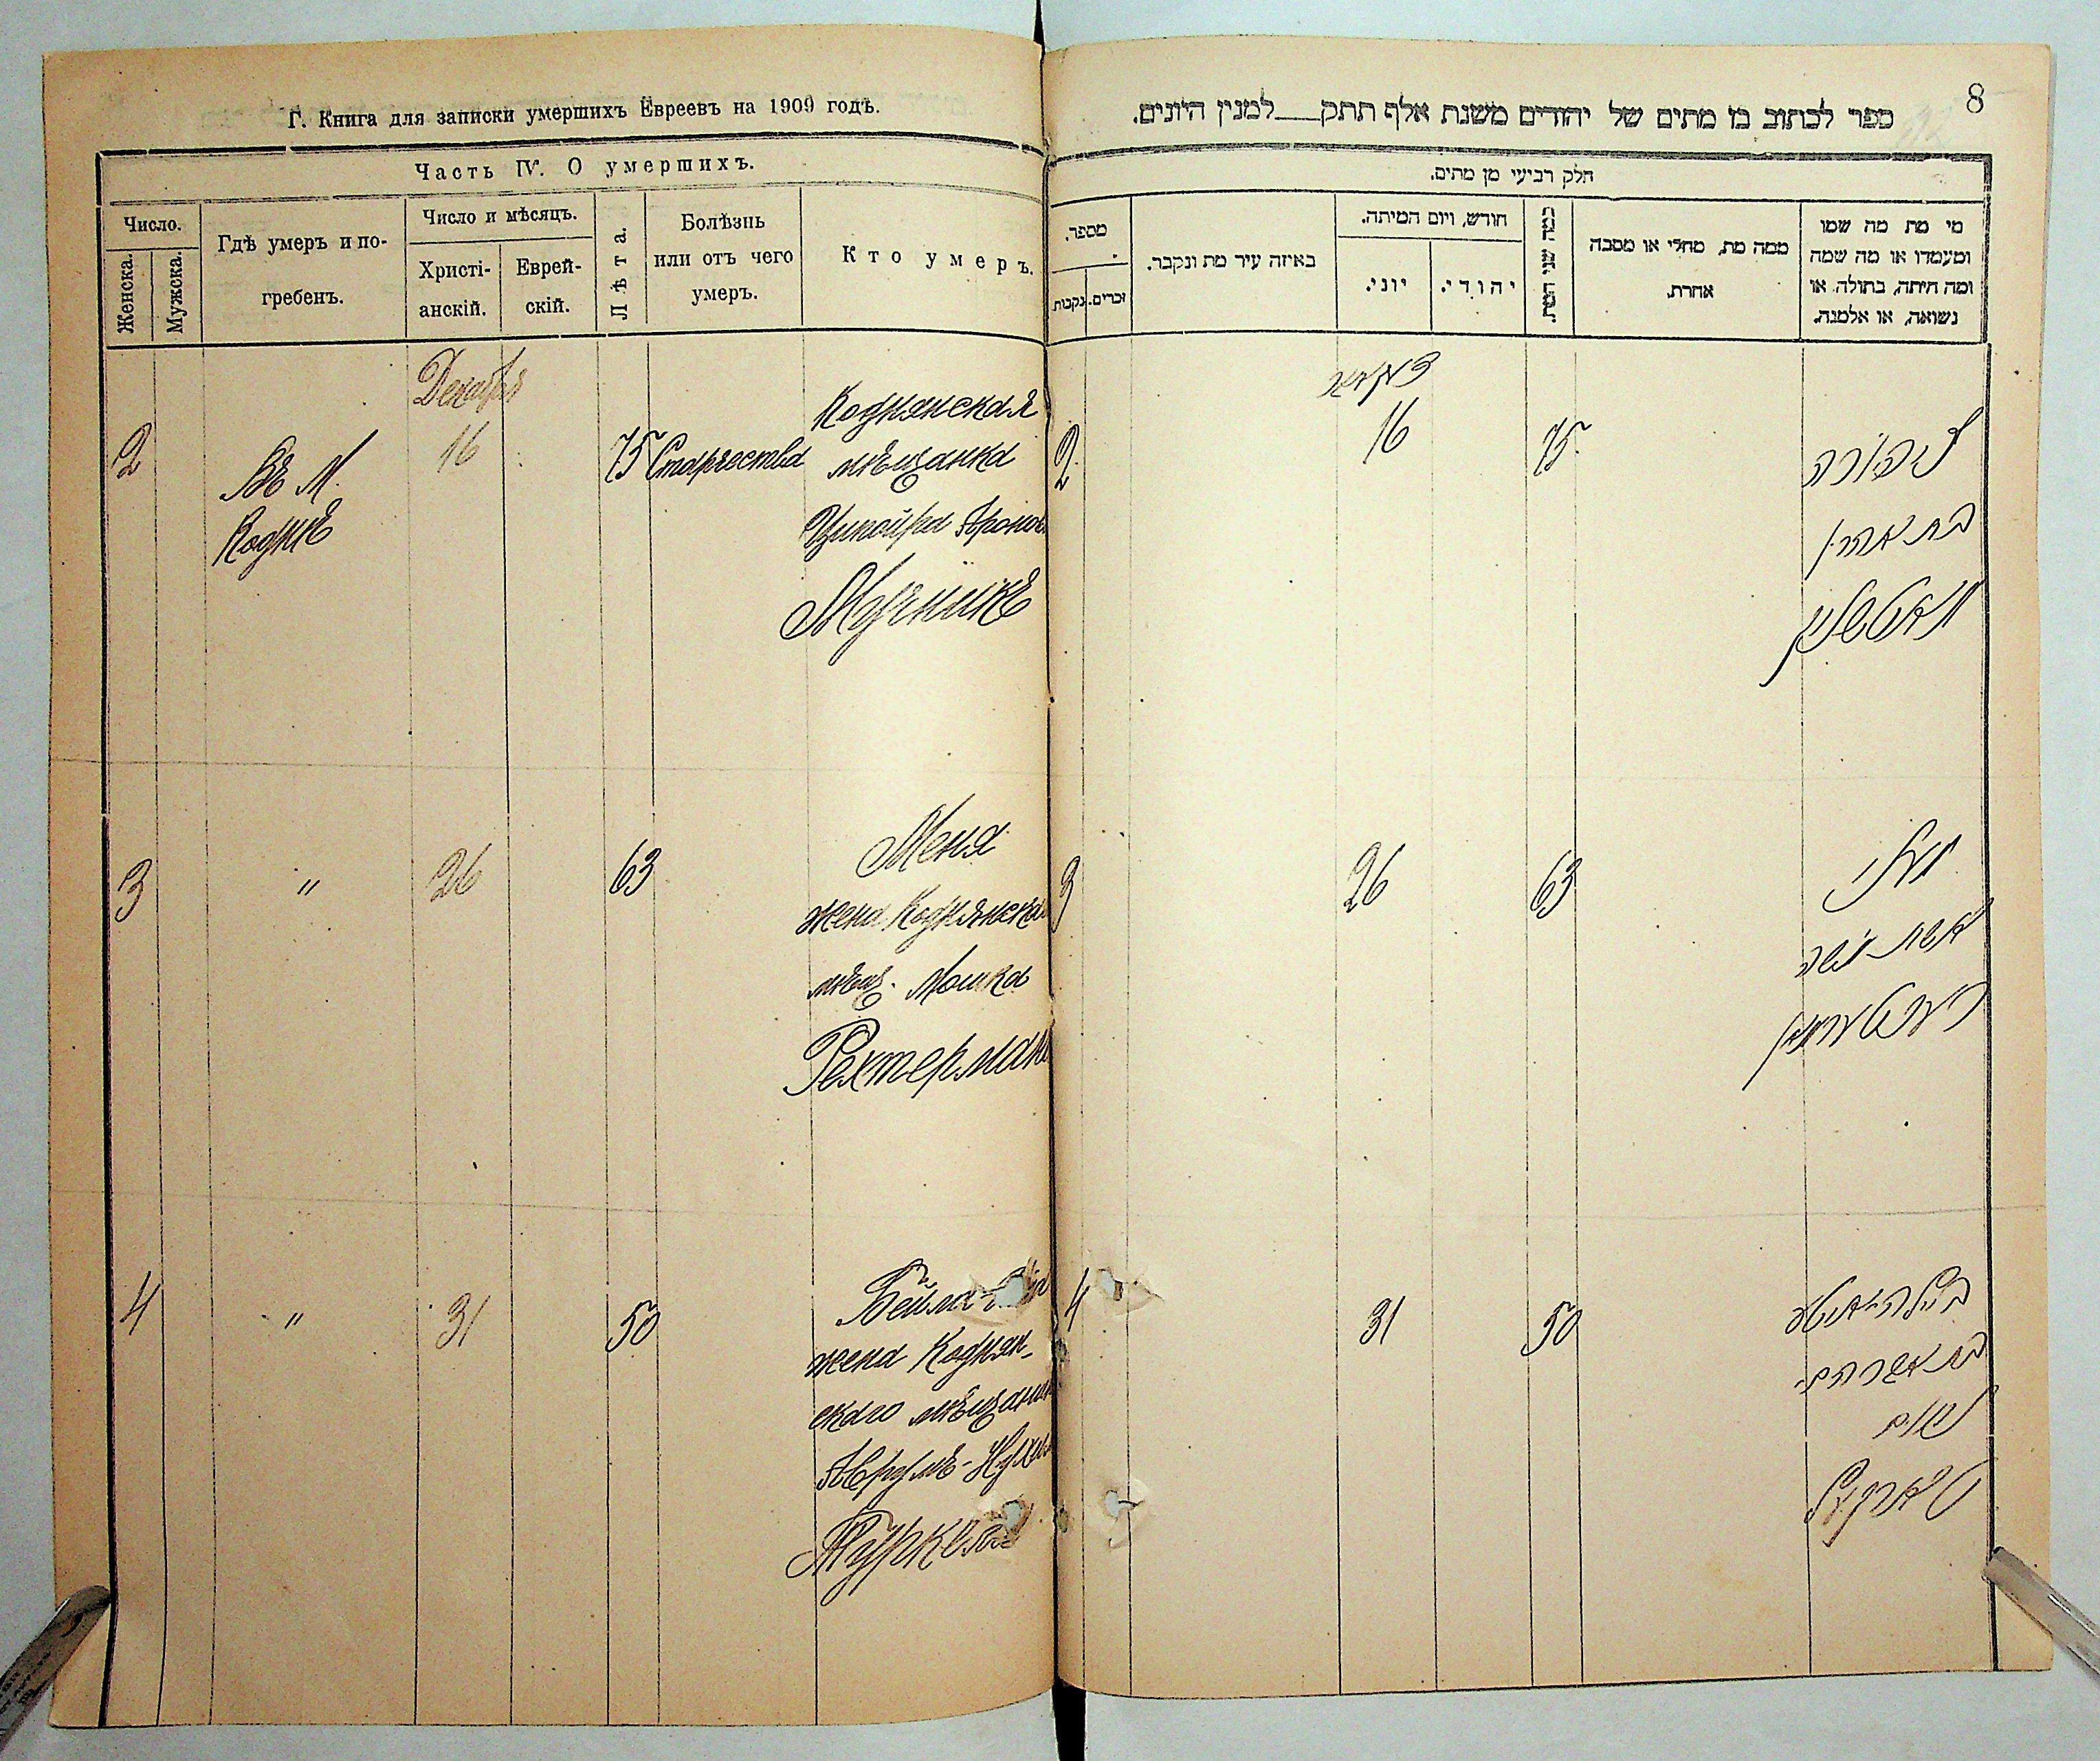 Г. Книга для записки умершихъ Евреевъ на 1909 годъ.
Часть IV. О умершихъ.
Число.
Женска.
Мужска.
Гдѣ умеръ и по-
гребенъ.
Число и мѣсяцъ.
Христі-
анскій.
Еврей-
скій.
Лѣта.
Болѣзнь
или отъ чего
умеръ.
Кто умеръ.
Декабря
2
Въ м.
Коднѣ
16
75
Старчества
Коднянская
мѣщанка
Ципойра Аронов
3
"
26
63
Меня
жена Коднянска
мѣщ. Мошка
Рехтерман
4
"
31
50
Бейла
жена Коднян-
скаго мѣщанин
Аврумъ-Нухим
8
ספר לכתוב בו מתים של יהודים משנת אלף תתק למנין היונים.
חלק רביעי מן מתים.
מספר.
נקבות
זכרים.
באיזה עיר מת ונקבר.
חודש, ויום המיתה.
יוני.
יהודי.
כמה שני המת.
ממה מת, מחלי או מסבה
אחרת.
מי מת מה שמו
ומעמדו או מה שמה
ומה היתה, בתולה או
נשואה, או אלמנה.
2
16
75
ציפורה
בת אהרן
3
26
63
מעני
אשת משה
רעכטערמאן
4
31
50
בת אברהם
נחום
טארקעל